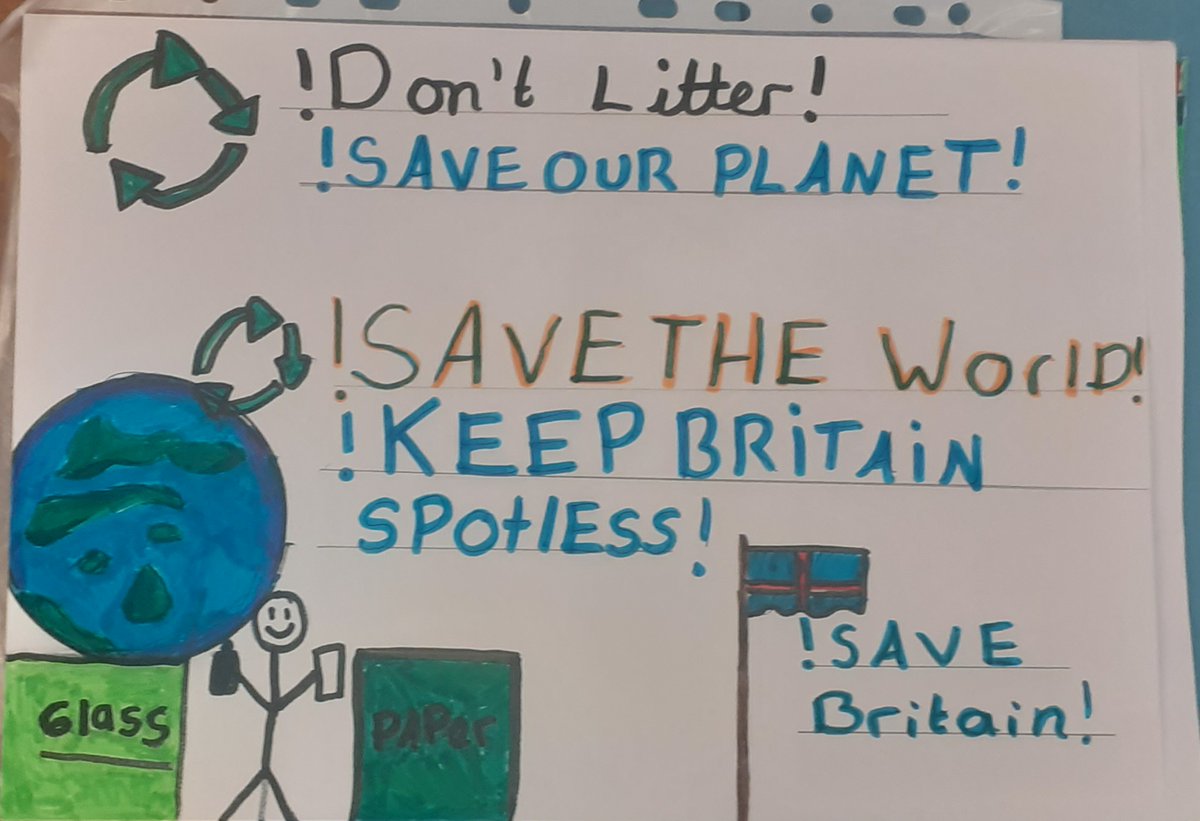 !Don't Litter!
!SAVE OUR PLANET!
!SAVE THE WorlD!
!KEEP BRiTAiN
SPOtlESS!
!SAVE
Britain!
Glass
PAPer